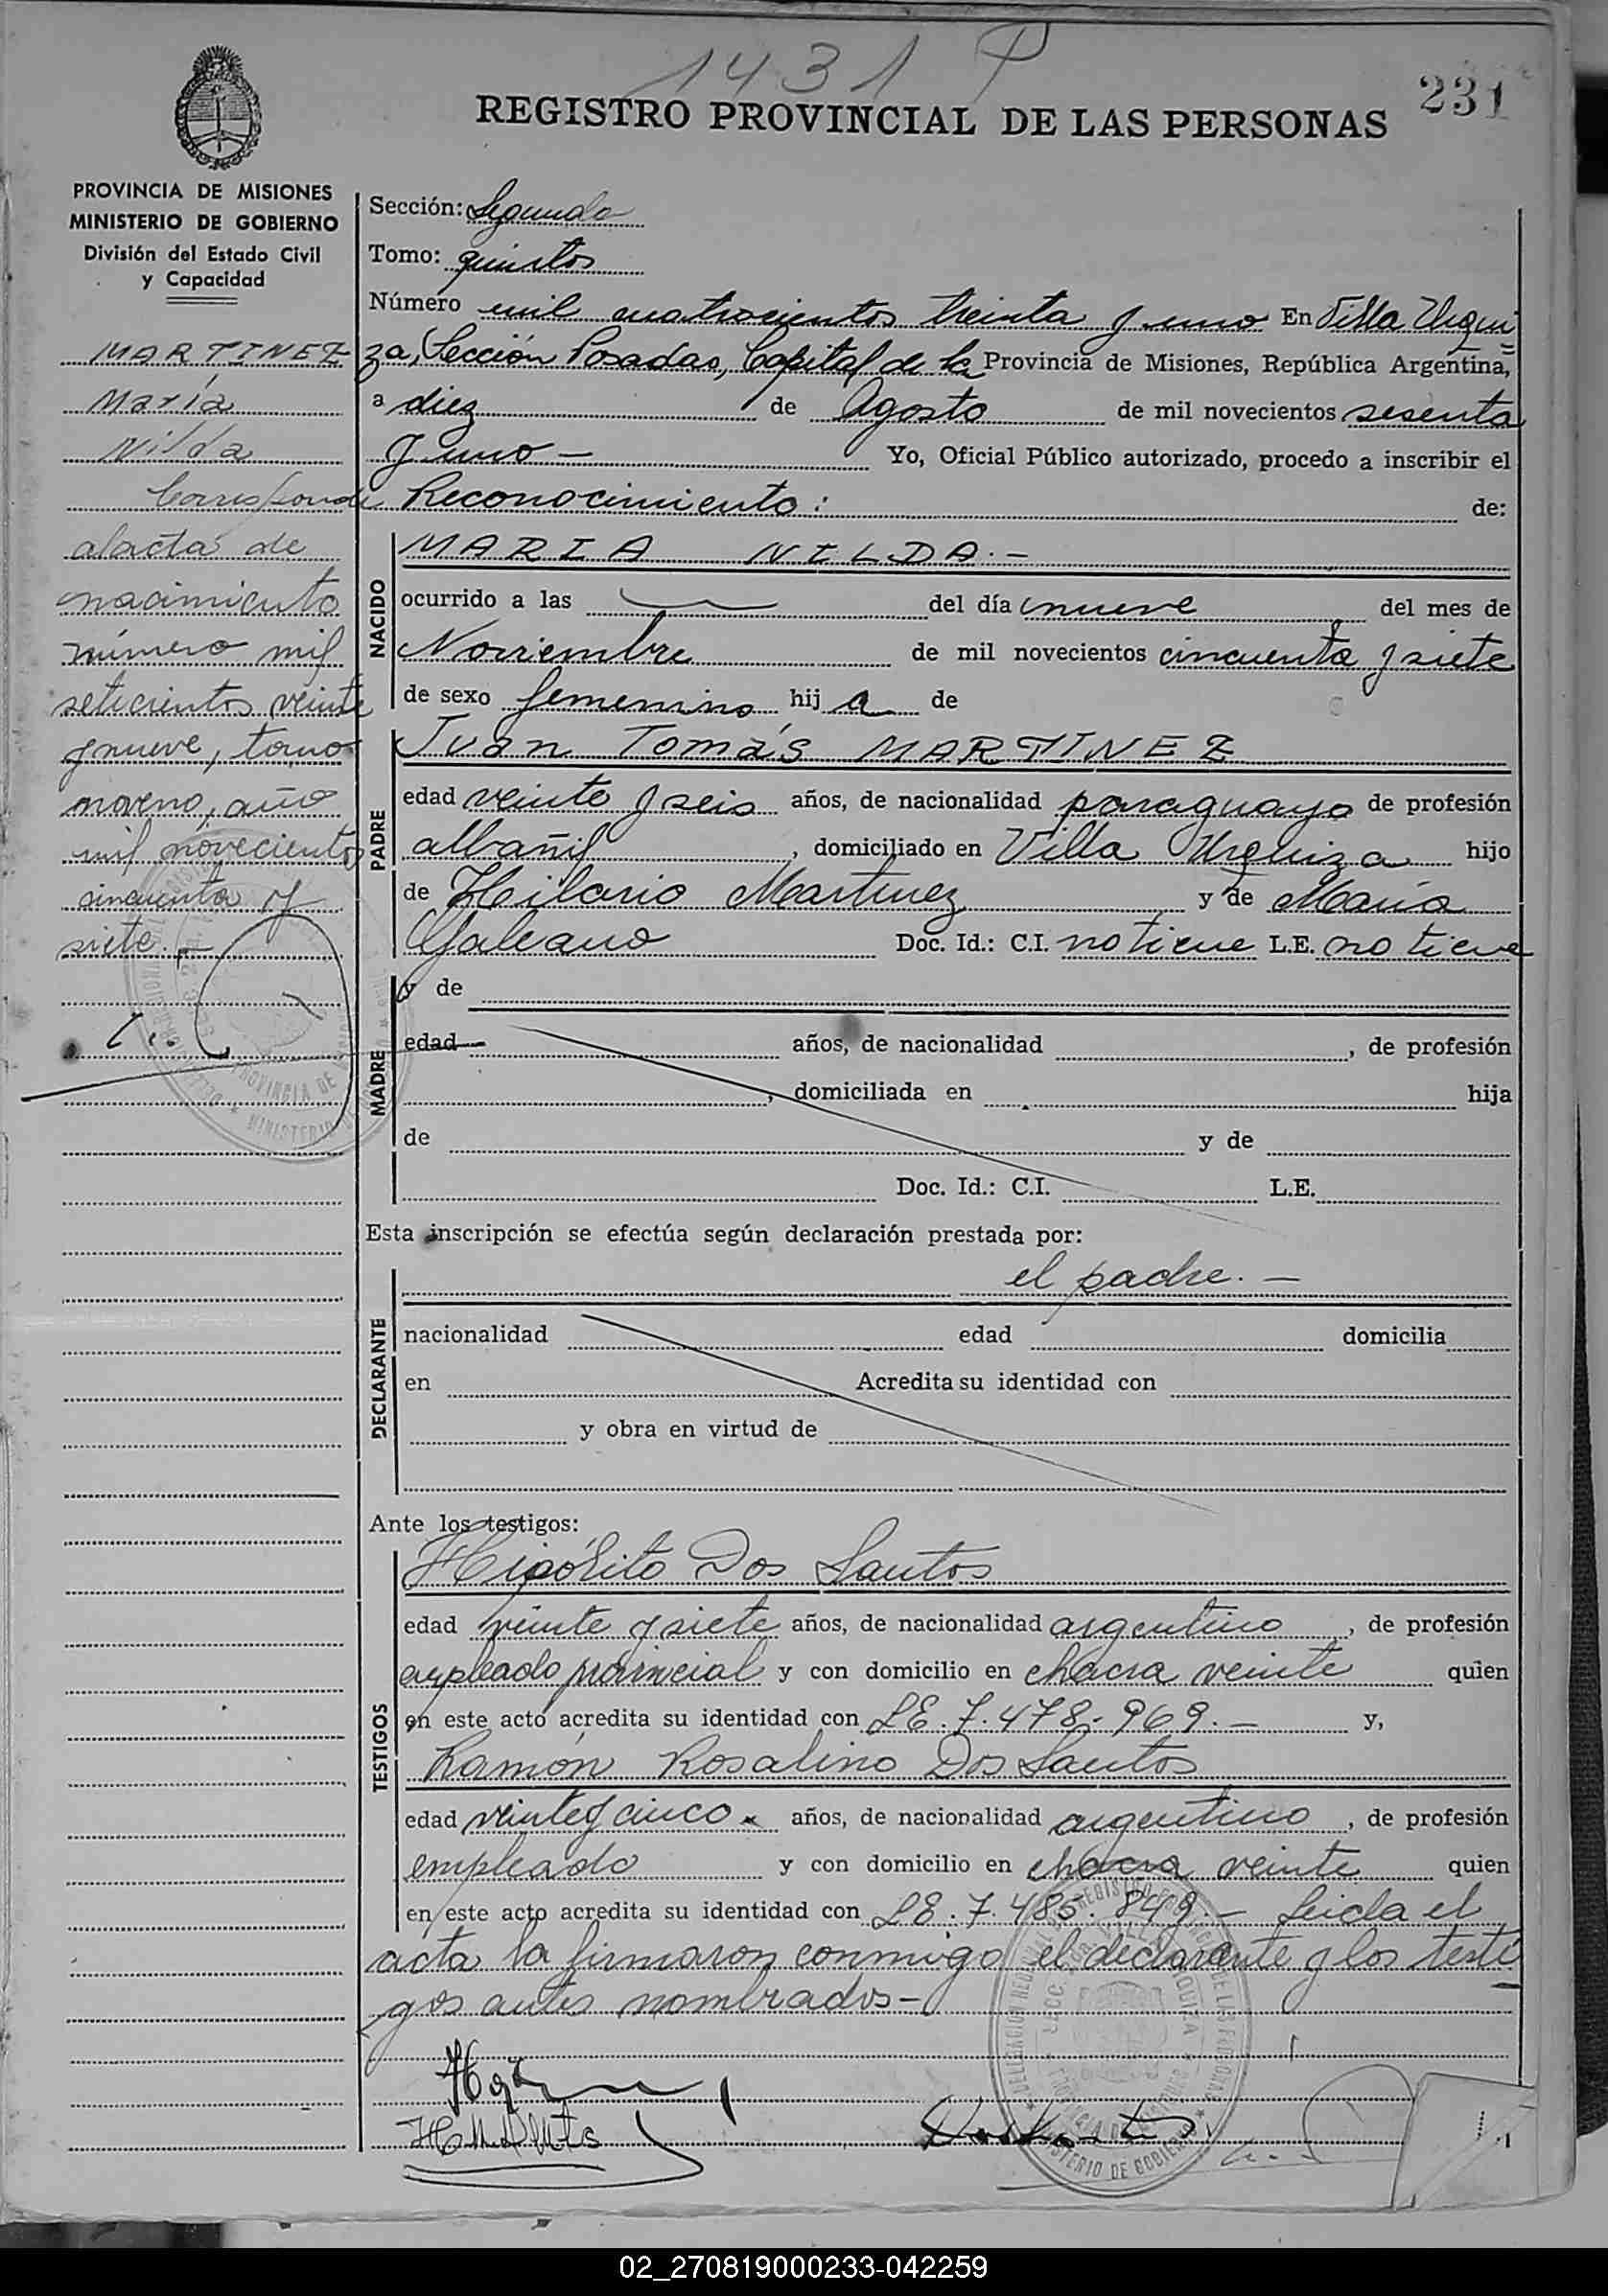 1431
231
REGISTRO PROVINCIAL DE LAS PERSONAS
PROVINCIA DE MISIONES
MINISTERIO DE GOBIERNO
División del Estado Civil
y Capacidad
MARTINEZ
María
Nilda
Corresponde
al acta de
nacimiento
número mil
setecientos veinte
y nueve, tomo
noveno, año
mil novecientos
cincuenta y
siete.-
Sección: Segunda
Tomo: quintos
Número mil cuatrocientos treinta y uno En Villa Urqui=
za, Sección Posadas, Capital de la Provincia de Misiones, República Argentina,
a diez de Agosto de mil novecientos sesenta
y uno - Yo, Oficial Público autorizado, procedo a inscribir el
Reconocimiento: de:
NACIDO
MARIA NILDA.-
ocurrido a las del día nueve del mes de
Noviembre de mil novecientos cincuenta y siete
de sexo femenino hij a de
PADRE
Juan Tomás MARTINEZ
edad veinte y seis años, de nacionalidad paraguaya de profesión
albañil, domiciliado en Villa Urquiza hijo
de Hilario Martinez y de María
Galeano Doc. Id.: C.I. no tiene L.E. no tiene
MADRE
y de
edad años, de nacionalidad , de profesión
, domiciliada en hija
de y de
Doc. Id.: C.I. L.E.
Esta inscripción se efectúa según declaración prestada por:
el padre. -
DECLARANTE
nacionalidad edad domicilia
en Acredita su identidad con
y obra en virtud de
Ante los testigos:
TESTIGOS
Hipólito Dos Santos
edad veinte y siete años, de nacionalidad argentino, de profesión
empleado provincial y con domicilio en chacra veinte quien
en este acto acredita su identidad con LE. 7.478.969.- y,
Ramón Rosalino Dos Santos
edad veinte y cinco años, de nacionalidad argentino, de profesión
empleado y con domicilio en chacra veinte quien
en este acto acredita su identidad con LE. 7.485.849 - Leida el
acta la firmaron conmigo el declarante y los testi
gos antes nombrados-
02_270819000233-042259